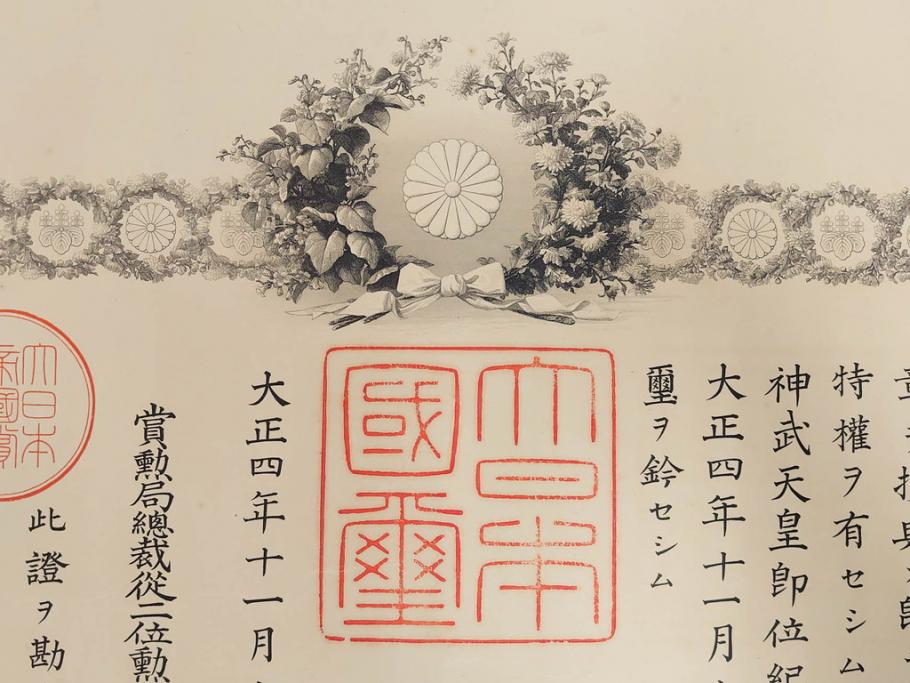 特權ヲ有セシム
神武天皇即位紀
大正四年十一月
璽ヲ鈐セシム
大日本
國璽
大正四年十一月
賞勲局總裁從二位勲
此證ヲ勘
大日本
帝國賞